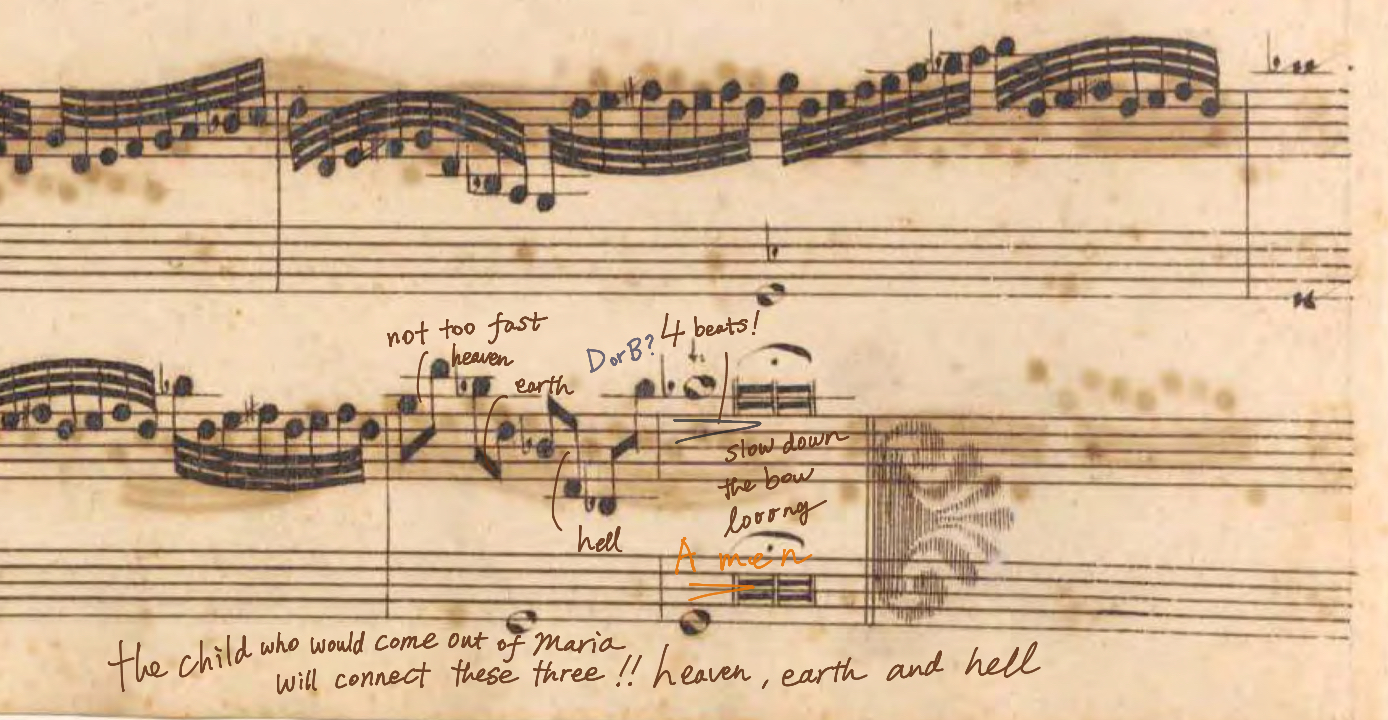 not too fast
heaven
earth
D or B?
4 beats!
slow down
the bow
looong
hell
A men
the child who would come out of Maria
will connect these three !! heaven, earth and hell